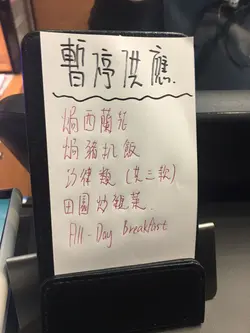 暫停供應
焗西蘭花
焗豬扒飯
沙律類 (共三款)
田園炒雜菜
All-Day Breakfast